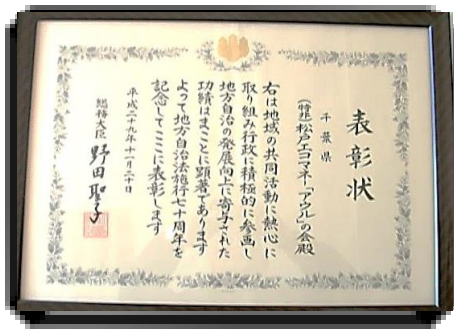 表彰状
千葉県
(特非)松戸エコマネー「アウル」の会殿
右は地域の共同活動に熱心に
取り組み行政に積極的に参画し
地方自治の発展向上に寄与された
功績はまことに顕著であります
よって地方自治法施行七十周年を
記念してここに表彰します
平成二十九年十一月二十日
総務大臣 野田聖子